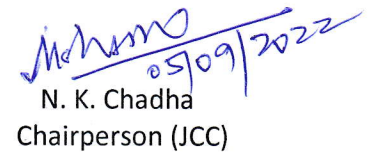 05/09/2022
N. K. Chadha
Chairperson (JCC)